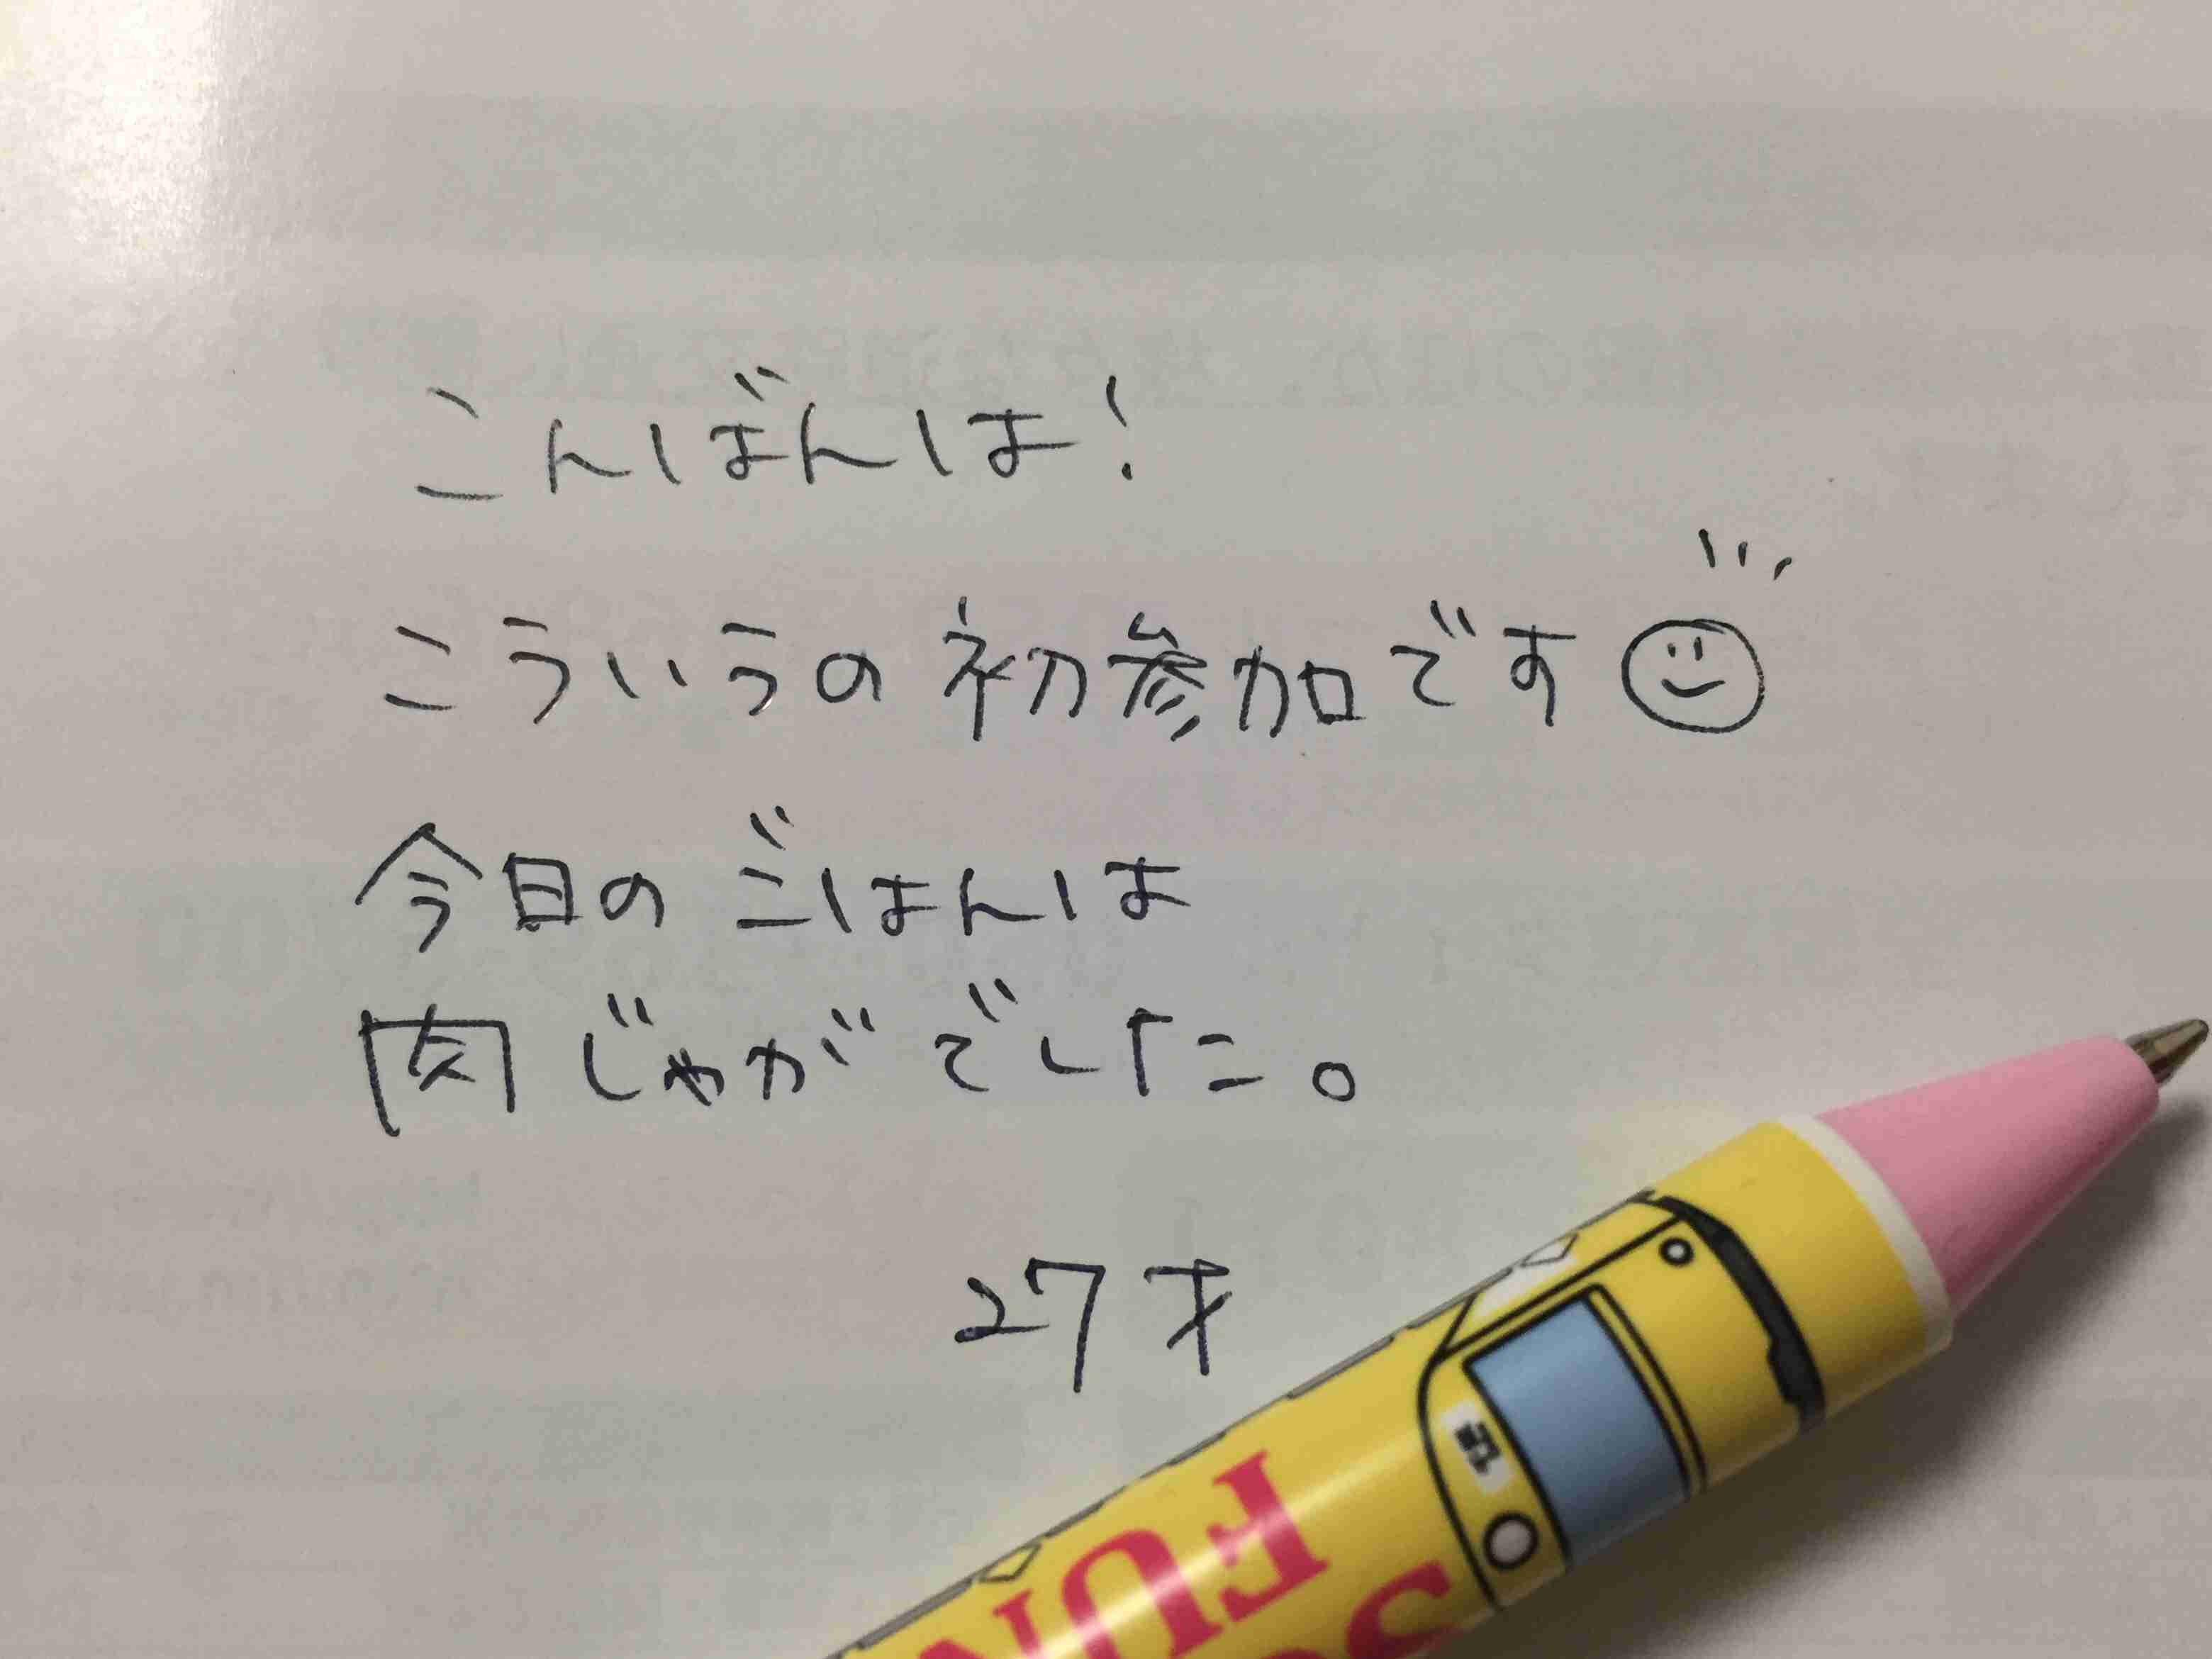 こんばんは!
こういうの初参加です
今日のごはんは
肉じゃがでした。
27才
FUN